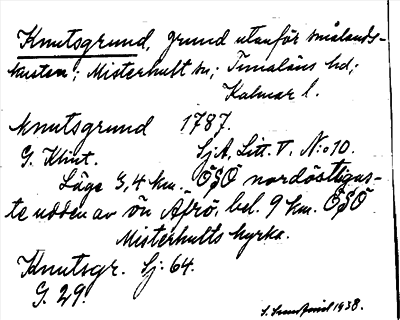 Knutsgrund, grund utanför smålands-
kusten; Misterhult sn; Tunaläns hd;
Kalmar l.
knutsgrund 1787.
G. Klint. SjA, Litt. V. N:o 10.
Läge 3,4 km. ÖSÖ nordöstligas-
te udden av ön Äfrö, bel. 9 km. ÖSÖ
Misterhults kyrka.
Knutsgr. Sj: 64.
G. 29.
1938.